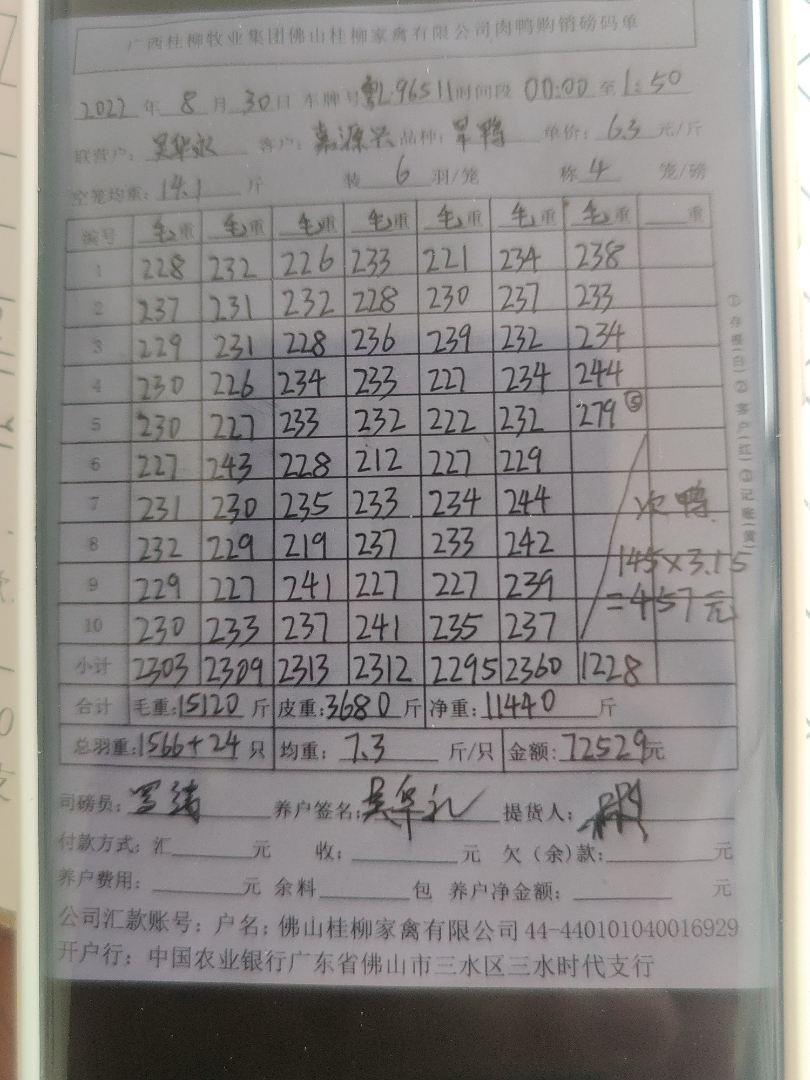 广西桂柳牧业集团佛山桂柳家禽有限公司肉鸭购销磅码单
2022 年 8 月 30 日 车牌号 L96511 时间段 00:00 至 1:50
联营户: 吴华永 客户: 嘉源兴 品种: 旱鸭 单价: 6.3 元/斤
空笼均重: 14.1 斤 装 6 羽/笼 称 4 笼/磅
编号 毛重 毛重 毛重 毛重 毛重 毛重 毛重 重
1 228 232 226 233 221 234 238
2 237 231 232 228 230 237 233
3 229 231 228 236 239 232 234
4 230 226 234 233 227 234 244
5 230 227 233 232 222 232 279 ⑤
6 227 243 228 212 227 229
7 231 230 235 233 234 244
8 232 229 219 237 233 242
9 229 227 241 227 227 239
10 230 233 237 241 235 237
次鸭
145×3.15
=457元
小计 2303 2309 2313 2312 2295 2360 1228
合计 毛重:15120 斤 皮重:3680 斤 净重:11440 斤
总羽重:1566+24 只 均重: 7.3 斤/只 金额:72529元
①存根(白)②客户(红)③记账(黄)
司磅员: 养户签名: 吴华礼 提货人:
付款方式: 汇 元 收: 元 欠(余)款: 元
养户费用: 元 余料 包 养户净金额: 元
公司汇款账号: 户名: 佛山桂柳家禽有限公司 44-440101040016929
开户行: 中国农业银行广东省佛山市三水区三水时代支行